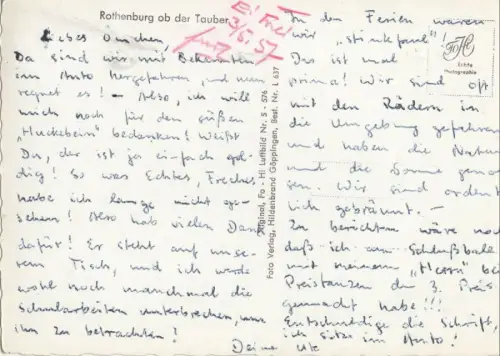 Rothenburg ob der Tauber
3/5. 57
Liebes Omchen,
Da sind wir mit Bekannten
im Auto hergefahren und nun
regnet es! – Also, ich will
mich noch für den süßen
"Huckebein" bedanken! Weißt
Du, der ist ja ei-fach gol-
dig! So was Echtes, Freches,
habe ich lange nicht ge-
sehen! Also hab vielen Dank
dafür! Er steht auf unse-
rem Tisch, und ich werde
wohl noch manchmal die
Schularbeiten unterbrechen, um
ihn zu betrachten!
Original, Fo - Hi Luftbild Nr. S - 576
Foto Verlag, Hildenbrand Göppingen, Best. Nr. L 637
In den Ferien waren
wir "stinkfaul"!
Das ist mal
prima! Wir sind oft
mit den Rädern in
die Umgebung gefahren
und haben die Natur
und die Sonne genos-
sen. Wir sind ordent-
lich gebräunt. –
Zu berichten wäre noch
daß ich am Schlußball
mit meinem "Herrn" bei
Preistanzen den 3. Preis
gemacht habe!!!
Entschuldige die Schrift,
ich sitze im Auto!
Deine Ute
FoHi
Echte
Photographie